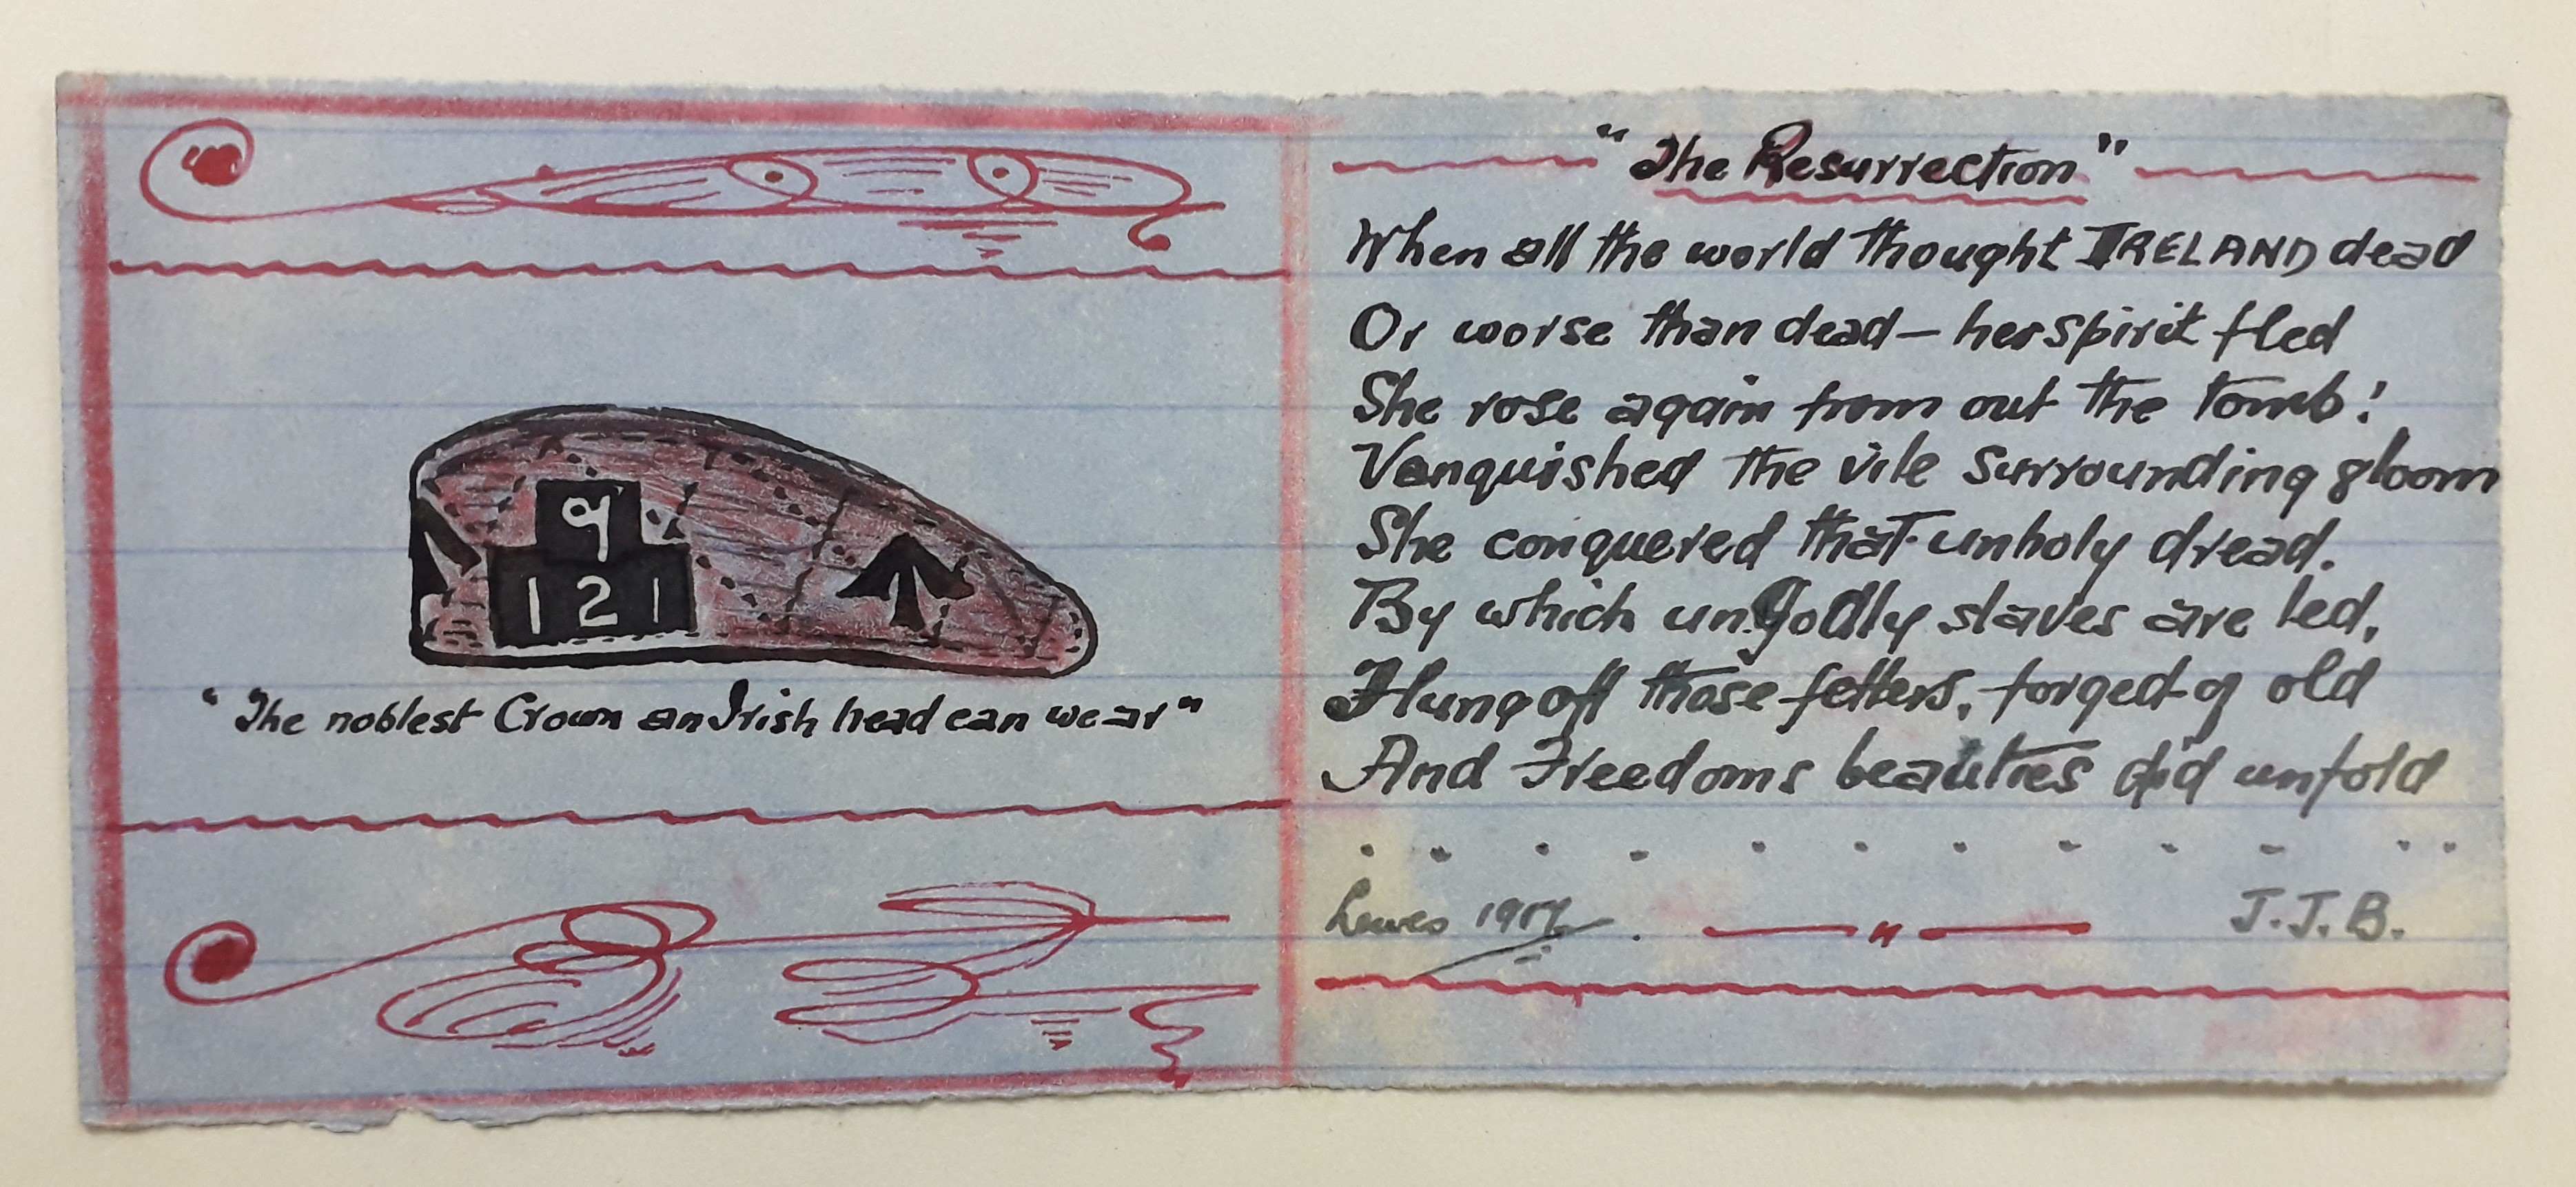 9
121
"The noblest Crown an Irish head can wear"
"The Resurrection"
When all the world thought IRELAND dead
Or worse than dead – her spirit fled
She rose again from out the tomb!
Vanquished the vile surrounding gloom
She conquered that unholy dread.
By which unGodly slaves are led,
Flung off those fetters, forged of old
And Freedoms beauties did unfold
Lewes 1917.
J.J.B.